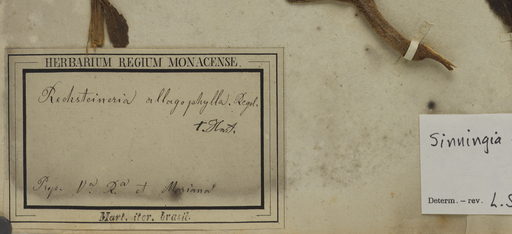 HERBARIUM REGIUM MONACENSE.
Rechsteineria allagophylla. Regel.
t. Hort.
Prope Va Ra et Mariana
Mart. iter. brasil.
Sinningia
Determ. – rev. L.S